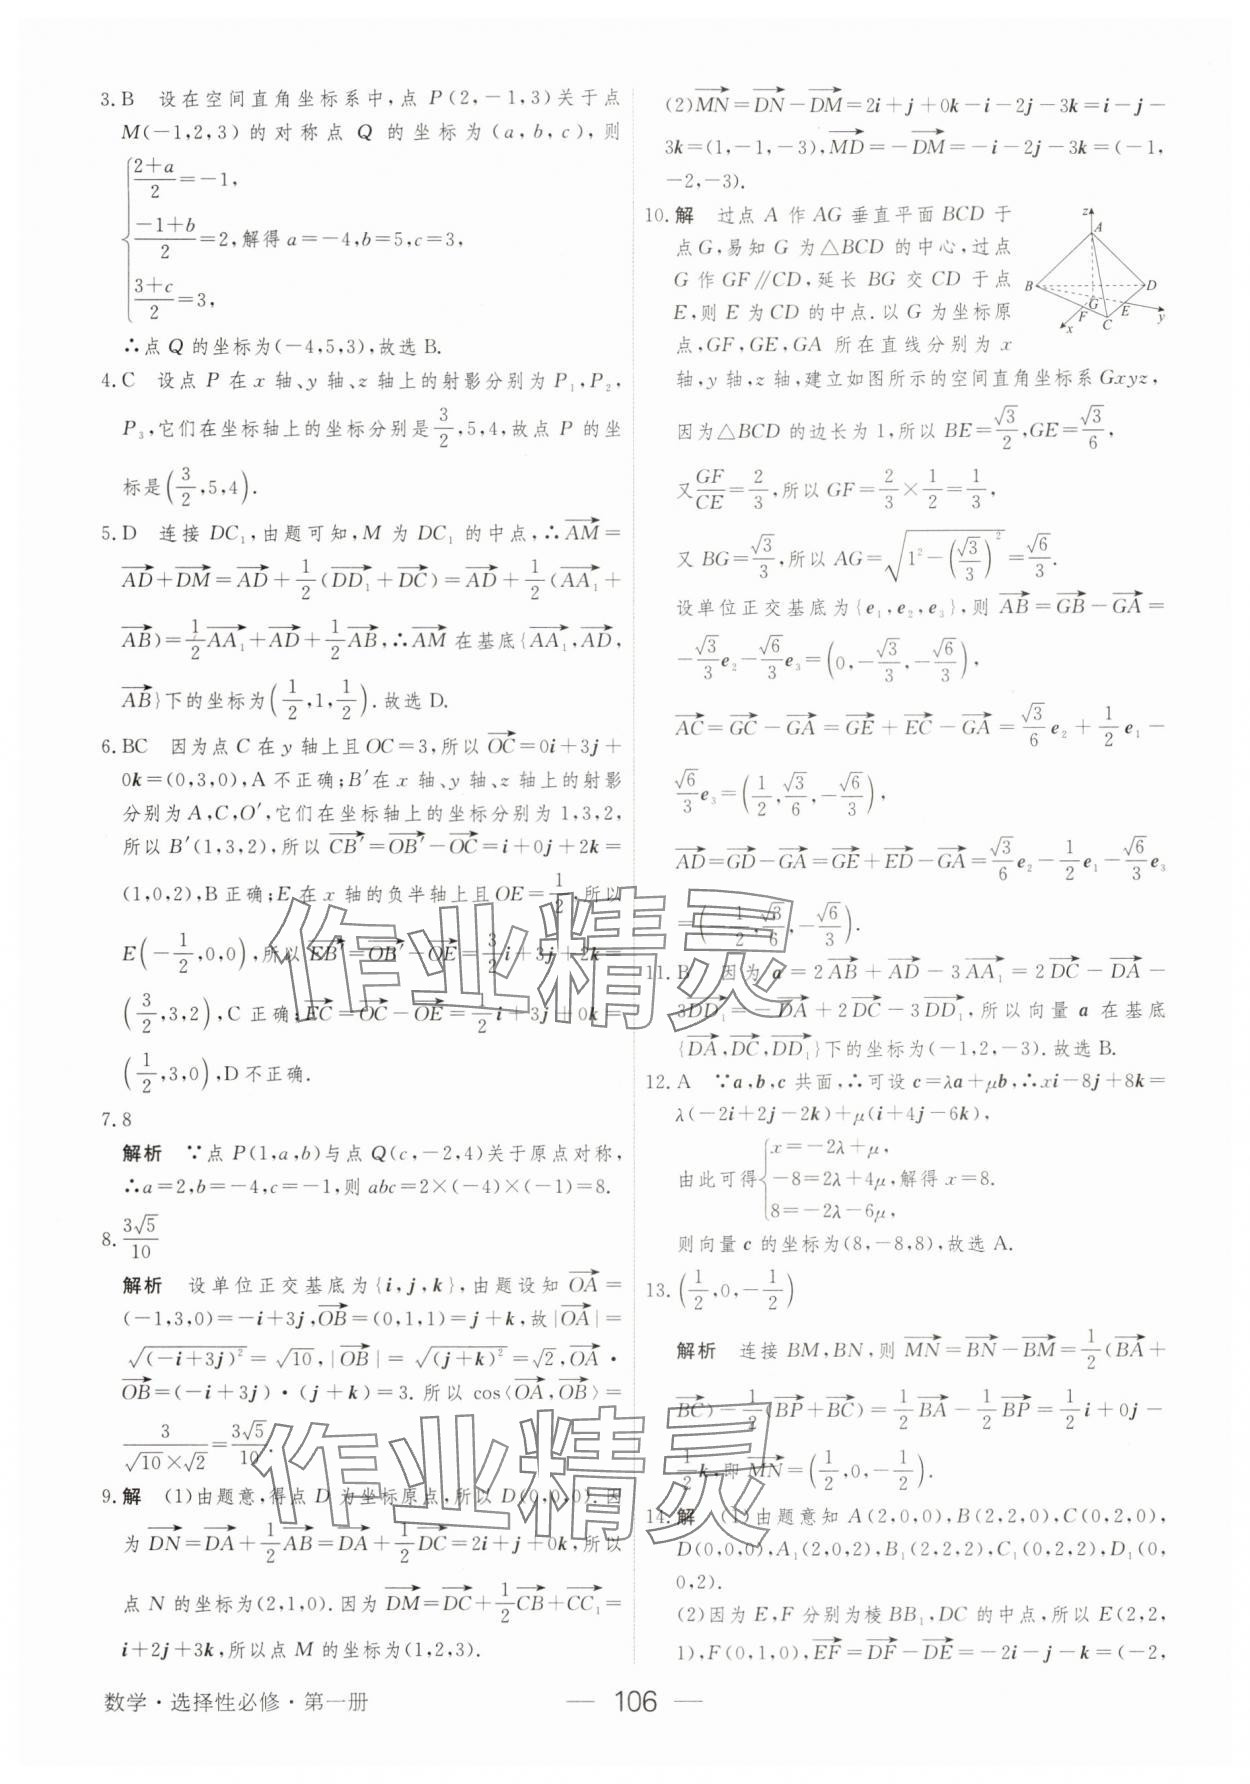 3. B 设在空间直角坐标系中,点 P(2,-1,3)关于点
M(-1,2,3)的对称点 Q 的坐标为(a,b,c),则
{(2+a)/2=-1,
(-1+b)/2=2,解得 a=-4,b=5,c=3,
(3+c)/2=3,
∴点 Q 的坐标为(-4,5,3),故选 B.
4. C 设点 P 在 x 轴、y 轴、z 轴上的射影分别为 P₁,P₂,
P₃,它们在坐标轴上的坐标分别是3/2,5,4,故点 P 的坐
标是(3/2,5,4).
5. D 连接 DC₁,由题可知,M 为 DC₁ 的中点,∴AM→=
AD→+DM→=AD→+1/2(DD₁→+DC→)=AD→+1/2(AA₁→+
AB→)=1/2AA₁→+AD→+1/2AB→,∴AM→在基底{AA₁→,AD→,
AB→}下的坐标为(1/2,1,1/2).故选 D.
6. BC 因为点 C 在 y 轴上且 OC=3,所以 OC→=0i+3j+
0k=(0,3,0),A 不正确;B′在 x 轴、y 轴、z 轴上的射影
分别为 A,C,O′,它们在坐标轴上的坐标分别为 1,3,2,
所以 B′(1,3,2),所以 CB′→=OB′→-OC→=i+0j+2k=
(1,0,2),B 正确;E 在 x 轴的负半轴上且 OE=1/2,所以
E(-1/2,0,0),所以 EB′→=OB′→-OE→=3/2i+3j+2k=
(3/2,3,2),C 正确;EC→=OC→-OE→=1/2i+3j+0k=
(1/2,3,0),D 不正确.
7. 8
解析 ∵点 P(1,a,b)与点 Q(c,-2,4)关于原点对称,
∴a=2,b=-4,c=-1,则 abc=2×(-4)×(-1)=8.
8. 3√5/10
解析 设单位正交基底为{i,j,k},由题设知 OA→=
(-1,3,0)=-i+3j,OB→=(0,1,1)=j+k,故|OA→|=
√(-i+3j)²=√10,|OB→|=√(j+k)²=√2,OA→·
OB→=(-i+3j)·(j+k)=3.所以 cos⟨OA→,OB→⟩=
3/(√10×√2)=3√5/10.
9. 解 (1)由题意,得点 D 为坐标原点,所以 D(0,0,0).因
为 DN→=DA→+1/2AB→=DA→+1/2DC→=2i+j+0k,所以
点 N 的坐标为(2,1,0).因为 DM→=DC→+1/2CB→+CC₁→=
i+2j+3k,所以点 M 的坐标为(1,2,3).
(2)MN→=DN→-DM→=2i+j+0k-i-2j-3k=i-j-
3k=(1,-1,-3),MD→=-DM→=-i-2j-3k=(-1,
-2,-3).
10. 解 过点 A 作 AG 垂直平面 BCD 于
点 G,易知 G 为△BCD 的中心,过点
G 作 GF∥CD,延长 BG 交 CD 于点
E,则 E 为 CD 的中点.以 G 为坐标原
点,GF,GE,GA 所在直线分别为 x
轴,y 轴,z 轴,建立如图所示的空间直角坐标系 Gxyz,
z
A
B
D
G
F
E
C
x
y
因为△BCD 的边长为 1,所以 BE=√3/2,GE=√3/6,
又GF/CE=2/3,所以 GF=2/3×1/2=1/3,
又 BG=√3/3,所以 AG=√(1²-(√3/3)²)=√6/3.
设单位正交基底为{e₁,e₂,e₃},则 AB→=GB→-GA→=
-√3/3e₂-√6/3e₃=(0,-√3/3,-√6/3),
AC→=GC→-GA→=GE→+EC→-GA→=√3/6e₂+1/2e₁-
√6/3e₃=(1/2,√3/6,-√6/3),
AD→=GD→-GA→=GE→+ED→-GA→=√3/6e₂-1/2e₁-√6/3e₃
=(-1/2,√3/6,-√6/3).
11. B 因为 a=2AB→+AD→-3AA₁→=2DC→-DA→-
3DD₁→=-DA→+2DC→-3DD₁→,所以向量 a 在基底
{DA→,DC→,DD₁→}下的坐标为(-1,2,-3).故选 B.
12. A ∵a,b,c 共面,∴可设 c=λa+μb,∴xi-8j+8k=
λ(-2i+2j-2k)+μ(i+4j-6k),
由此可得{x=-2λ+μ,
-8=2λ+4μ,解得 x=8.
8=-2λ-6μ,
则向量 c 的坐标为(8,-8,8),故选 A.
13. (1/2,0,-1/2)
解析 连接 BM,BN,则 MN→=BN→-BM→=1/2(BA→+
BC→)-1/2(BP→+BC→)=1/2BA→-1/2BP→=1/2i+0j-
1/2k,即 MN→=(1/2,0,-1/2).
14. 解 (1)由题意知 A(2,0,0),B(2,2,0),C(0,2,0),
D(0,0,0),A₁(2,0,2),B₁(2,2,2),C₁(0,2,2),D₁(0,
0,2).
(2)因为 E,F 分别为棱 BB₁,DC 的中点,所以 E(2,2,
1),F(0,1,0),EF→=DF→-DE→=-2i-j-k=(-2,
作业精灵
作业精灵
数学·选择性必修·第一册
— 106 —